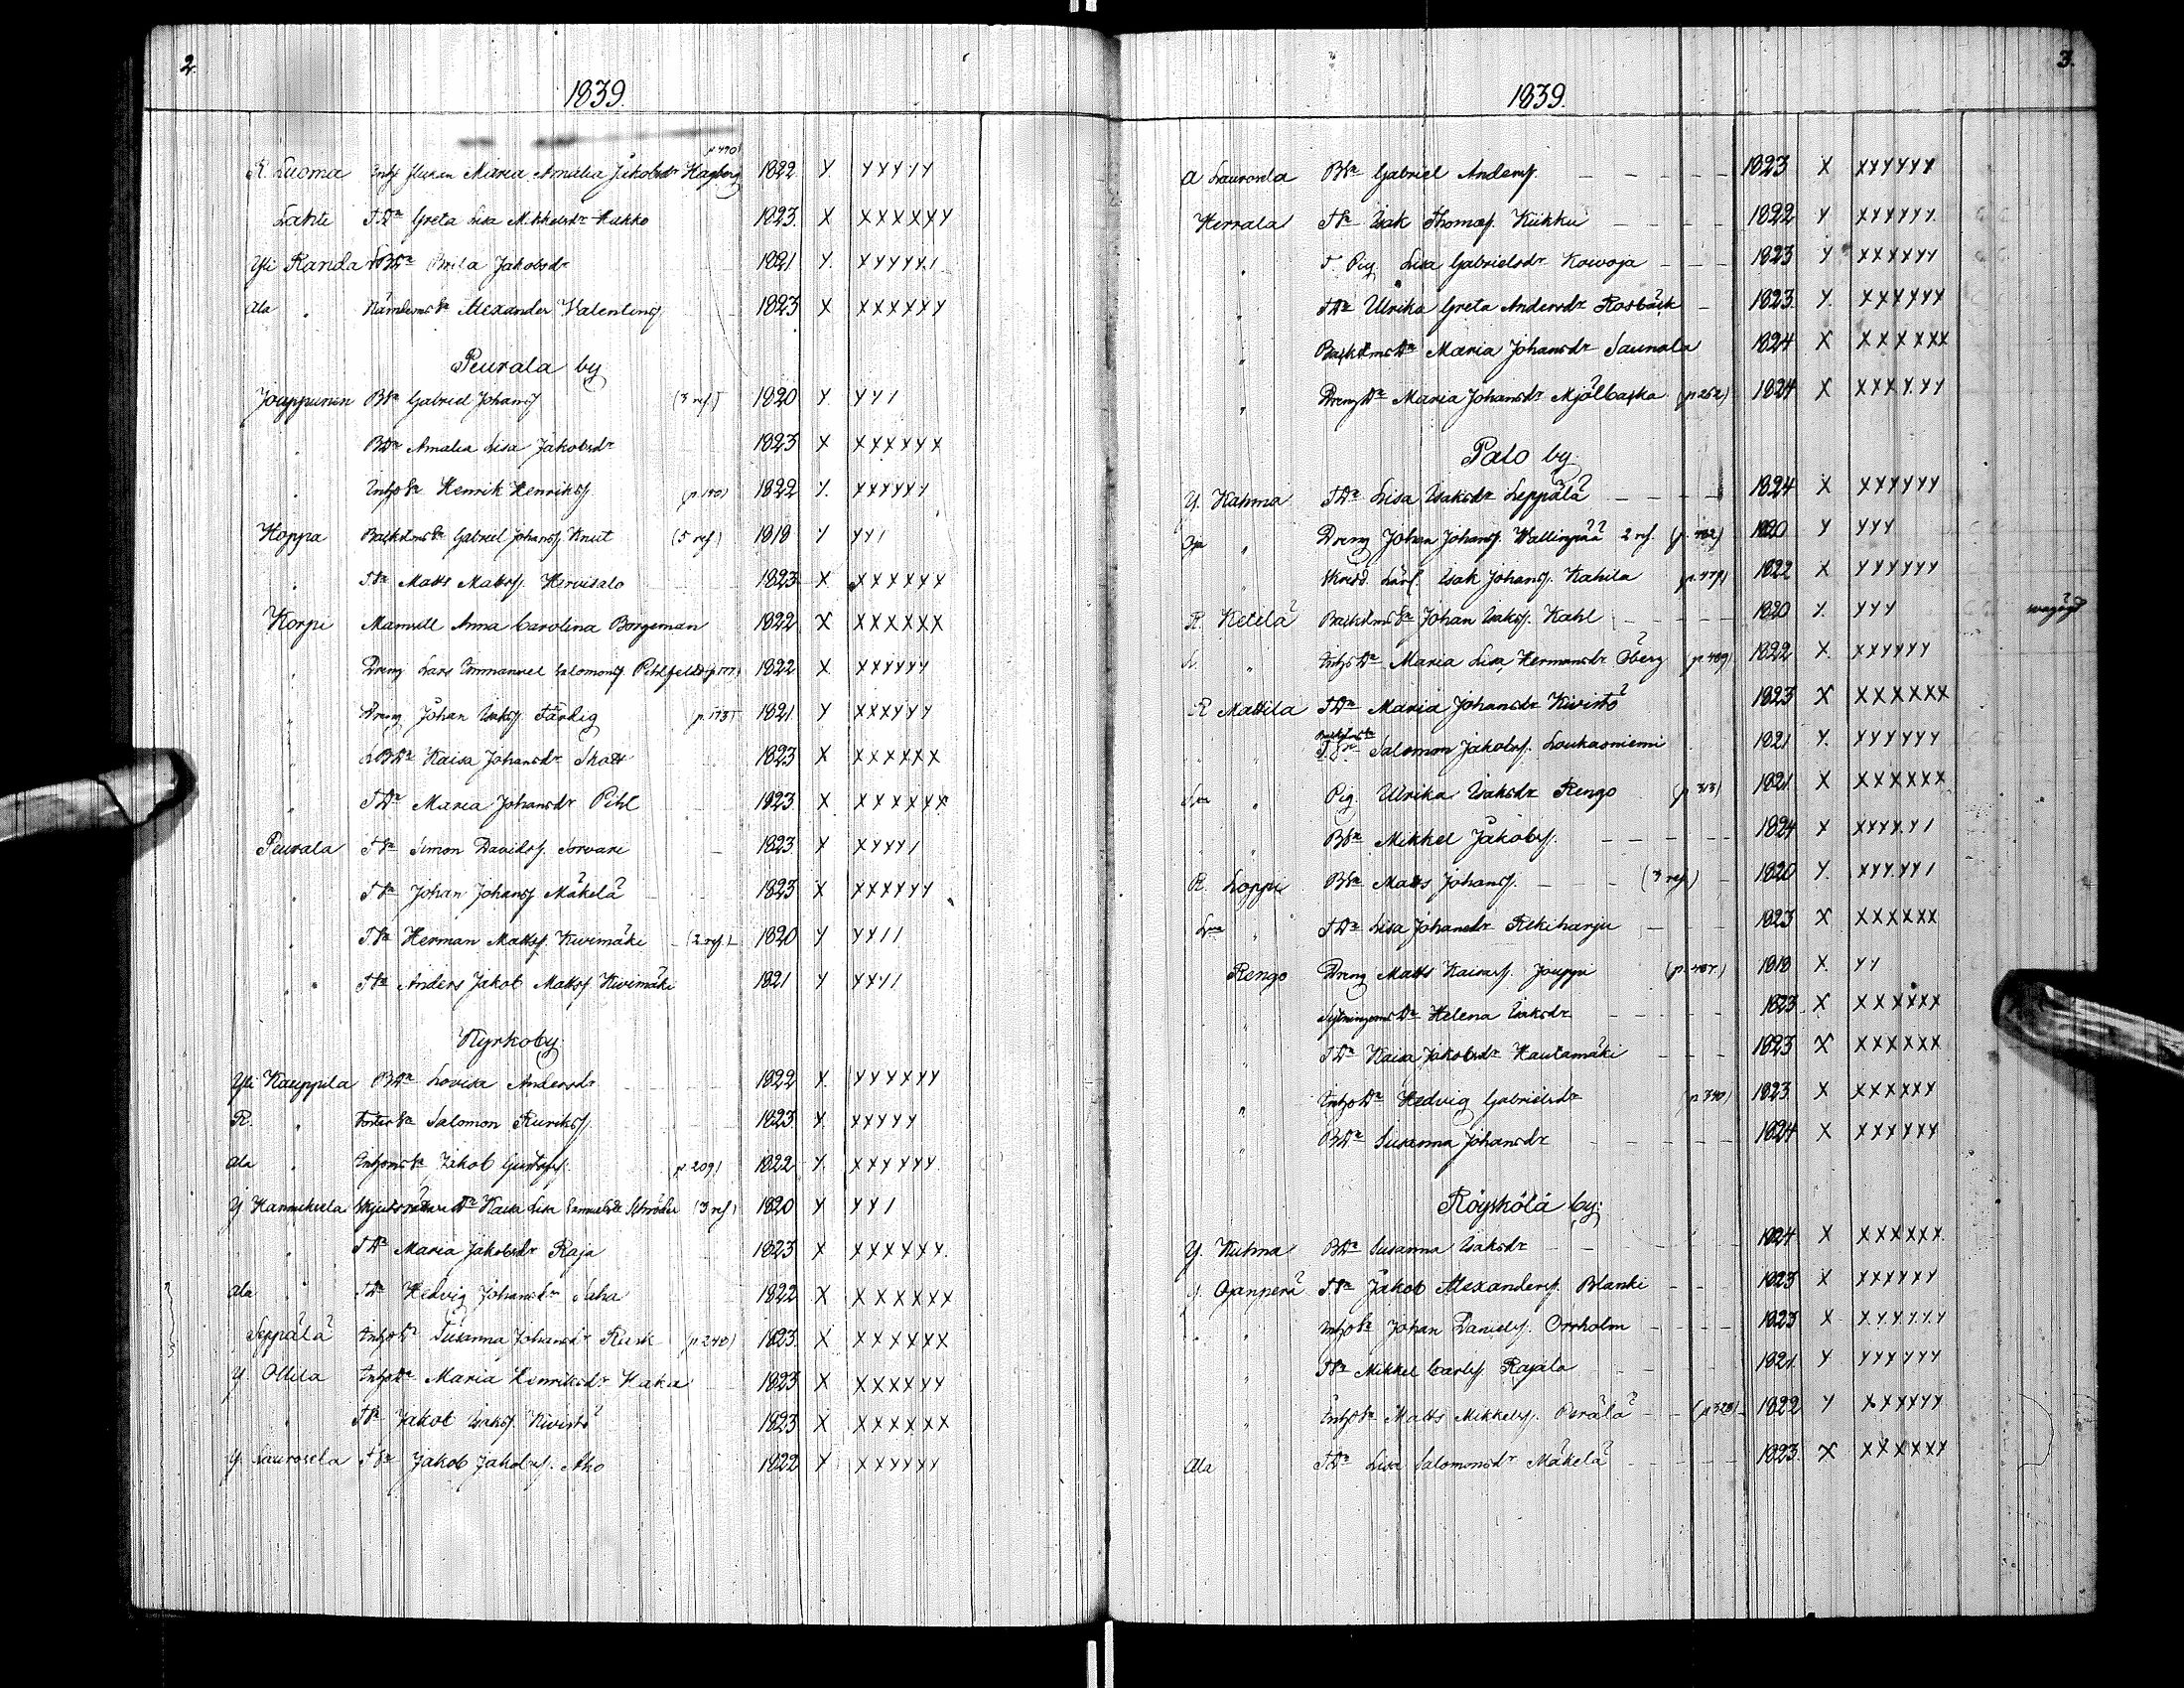 2.
1839.
R. Luoma Inhs flickan Maria Amalia Jakobsdr Hagberg p 490 1822 Y. YYYYY
Lahti T.Dr Greta Lisa Mikkelsdr Hukko 1823. X XXXXXY
Yli Randa BDr Brita Jakobsdr 1821 Y. XYYYXI
Ala " Nämdems Sn Alexander Valentinsf 1823 X XXXXXX
Peurala by
Jouppunen BSn Gabriel Johansf (3 ref) 1820 Y. YYI
" BDr Amalia Lisa Jakobsdr 1823 X XXXXXX
" Inhs Sn Henrik Henriksf. (p.190) 1822 Y. YXXXXY
Hoppa Backstms Sn Gabriel Johansf. Knut (5 ref) 1818 Y YYI
" TSn Matts Mattsf. Hervisalo 1823 X XXXXXX
Korpi Mamsell Anna Carolina Borgeman 1822 X XXXXXX
" Dreng Lars Emmanuel Salomonsf. Pihlfeldt 1822 X. XXXXYY
" Dreng Johan Isaksf. Färdig p.193 1821. Y XXXYYY
" LBDr Kaisa Johansdr Skatt 1823 X XXXXXX
" TDr Maria Johansdr Pihl 1823. X XXXXXX
Peurala TSn Simon Davidsf. Torvari 1823. X XYYYI
" TSn Johan Johansf Mäkelä 1823 X XXXXYY
" TSn Herman Mattsf. Kivimäki (2 ref.) 1820 Y YXII
" TSn Anders Jakob Mattsf Kivimäki 1821 Y YXYI
Kyrkoby.
Yli Kauppila BDr Lovisa Andersdr 1822 Y. YYYXYY
R. " Salomon Kuriksf. 1823. X XXYYY
Ala " Inhyms Sn Jakob Gustafsf. p 209) 1822 Y. XXYYYY.
Y Hannuksela Kaisa Lisa Samuelsdr Schröder (3 ref) 1820 Y YYI
" TDr Maria Jakobsdr Raja 1823 X XXXXXX.
Ala " TDr Hedvig Johansdr Saha 1822 X XXXXXX
Seppälä InhsDr Susanna Johansdr Rusk p 240) 1823. X XXXXXX
Y Ollila InhsDr Maria Henriksdr Haka 1823 X XXXXYY
" TSn Jakob Isaksf. Kivistö 1823 X XXXXXX
Y. Laurosela TSn Jakob Jakobsf. Aho 1822 Y XXXXYY
3.
1839.
A Laurosela BSn Gabriel Andersf. 1823 X XYYYYX
Herrala TSn Isak Thomasf. Kükku 1822 Y XYYYYY.
" T. Pig. Lisa Gabrielsdr Kowoja 1823 Y XXXXYY
" TDr Ulrika Greta Andersdr Rosbäck 1823. Y. XXXYYY
" Backstms Dr Maria Johansdr Saunala 1824 X XXXXXX
" Dreng Dr Maria Johansdr Mjölbacka (p 252) 1824 X XXXYYY
Palo by.
Y. Kahma TDr Lisa Isaksdr Leppälä 1824 X XYYYYY
" Dreng Johan Johansf. Wallinpää 2 ref. 1820 Y YYY
" Isak Johansf. Kahila 1822 X YYYYYY
R. Ketelä Backstms Sn Johan Isaksf. Kahl 1820 Y. YYY
L. " Inhs Dr Maria Lisa Hermansdr Öberg (p 489) 1822 X. XXYYYY
R Mattila TDr Maria Johansdr Kivistö 1823 X XXXXXX
" T.Sn Salomon Jakobsf. Loukasniemi 1821 Y. YYYYYY
" Pig. Ulrika Isaksdr Rengo (p 313) 1821. X XXXXXX
" BSn Mikkel Jakobsf. 1824 X XXYYYI
R. Loppi BSn Matts Johansf. (3 ref.) 1820 Y. YYYYYI
" TDr Lisa Johansdr Rekiharju 1823 X XXXXXX
Rengo Dreng Matts Kaisasf. Jouppi 1818 X. YY
" Sytningsms Dr Helena Isaksdr 1823. X XXXXXX
" TDr Kaisa Jakobsdr Hautamäki 1823 X XXXXXX
" Inhs Dr Hedvig Gabrielsdr (p 340) 1823. X XXXXYY
" BDr Susanna Johansdr 1824 X XXYXYY
Röyskölä by.
Y. Kuhna BDr Susanna Isaksdr 1824 X XXXXXX.
Y. Ojanperä T.Sn Jakob Alexandersf. Blanki 1823 X XYYYYY
" Inhs Sn Johan Danielsf. Orrholm 1823 X XYYYYY
" TSn Mikkel Carlsf. Rajala 1821. Y YYYYYY
" Inhs Sn Matts Mikkelsf. Perälä (p 328) 1822 Y XXYYYY
Ala TDr Lisa Salomonsdr Mäkelä 1823. X XXXXXX